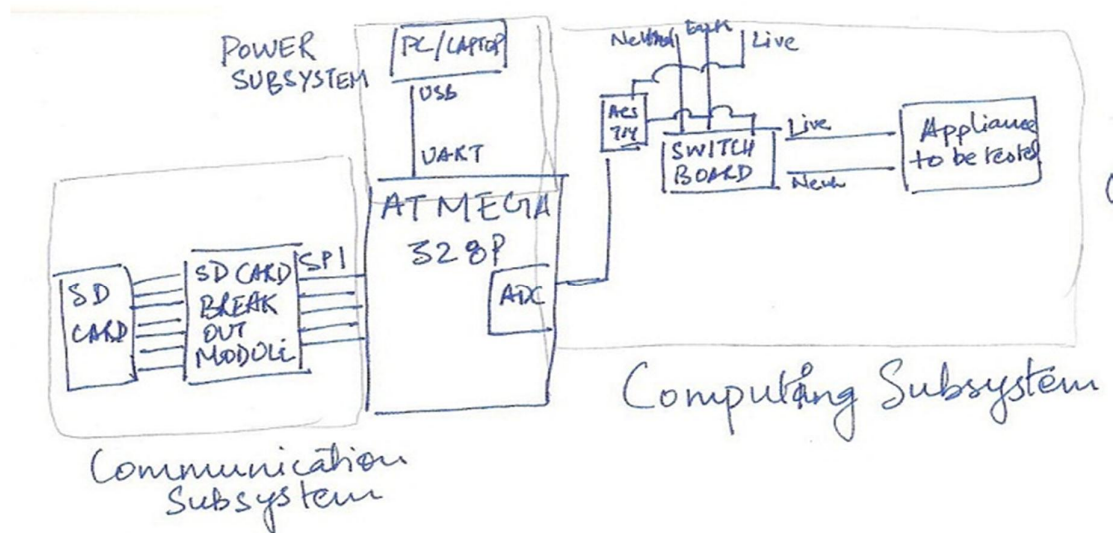 POWER
SUBSYSTEM
PC/LAPTOP
USB
UART
Neutral
Earth
Live
SWITCH
BOARD
Live
Appliance
to be tested
ATMEGA
328P
ADC
SPI
SD
CARD
SD CARD
BREAK
OUT
MODULE
Computing Subsystem
Communication
Subsystem